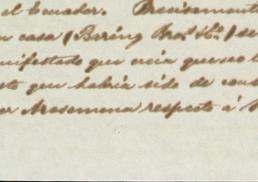 el Ecuador. Precisamente
casa (Bering Bros. &c.) se
nifestado que creia que se l
to que habria sido de cons
or Mosemena respecto á